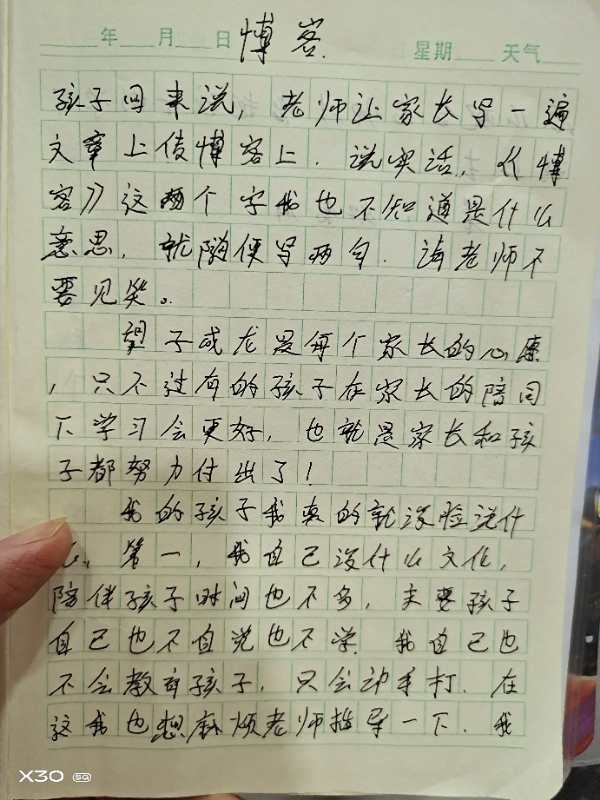 ____年___月___日 博客. 星期___天气
孩子回来说，老师让家长写一遍
文章上传博客上.说实话，《博
客》这两个字我也不知道是什么
意思，就随便写两句.请老师不
要见笑。
望子成龙是每个家长的心愿
，只不过有的孩子在家长的陪同
下学习会更好，也就是家长和孩
子都努力付出了！
我的孩子我真的就没脸说什
么。第一，我自己没什么文化，
陪伴孩子时间也不多，主要孩子
自己也不自说也不学.我自己也
不会教育孩子.只会动手打.在
这我也想麻烦老师指导一下.我
X30 5G